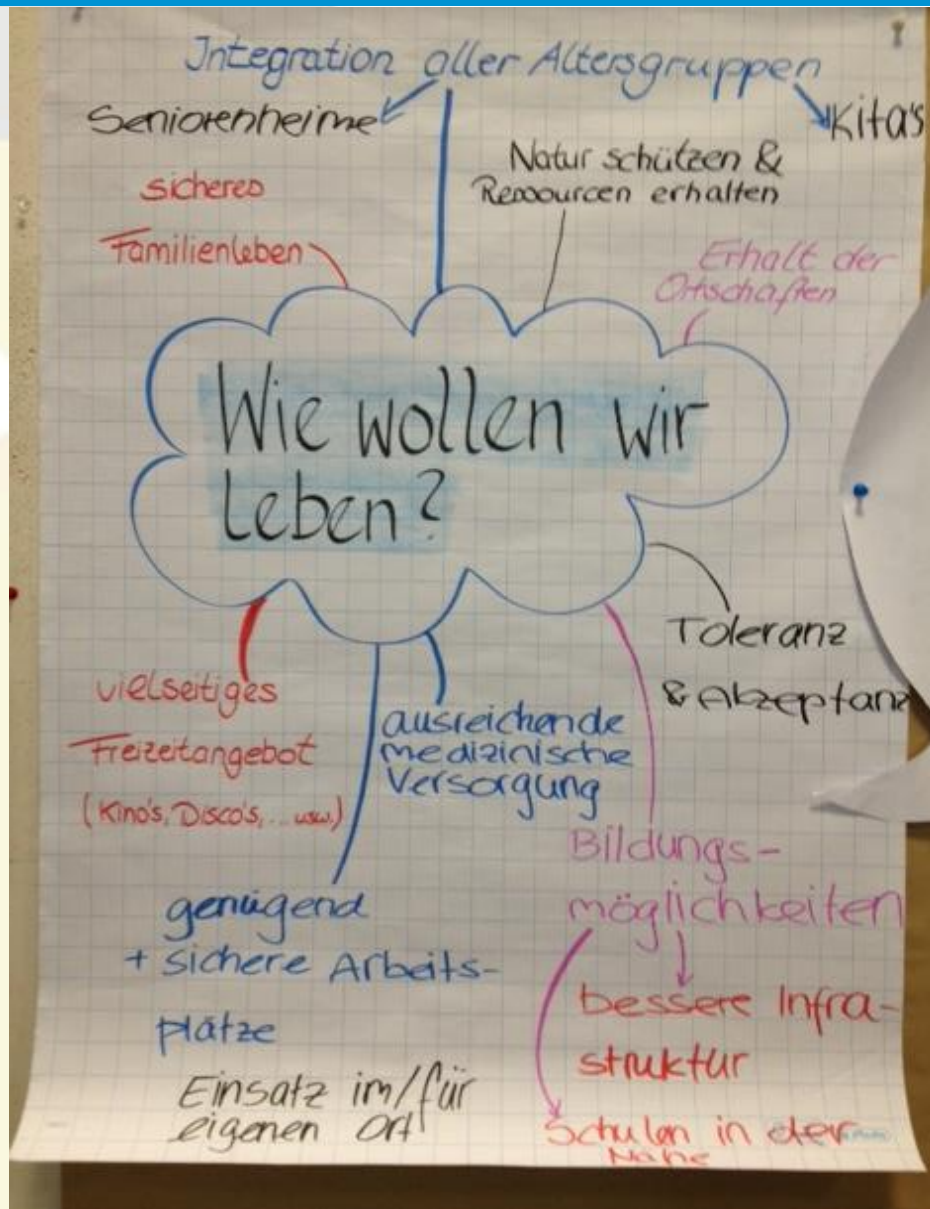 Integration aller Altersgruppen
Seniorenheime
Kita's
Natur schützen &
Ressourcen erhalten
sicheres
Familienleben
Erhalt der
Ortschaften
Wie wollen wir
leben?
Toleranz
& Akzeptanz
vielseitiges
Freizeitangebot
(Kino's, Disco's, ... usw.)
ausreichende
medizinische
Versorgung
Bildungs-
möglichkeiten
genügend
+ sichere Arbeits-
plätze
bessere Infra-
struktur
Einsatz im/für
eigenen Ort
Schulen in der
Nähe